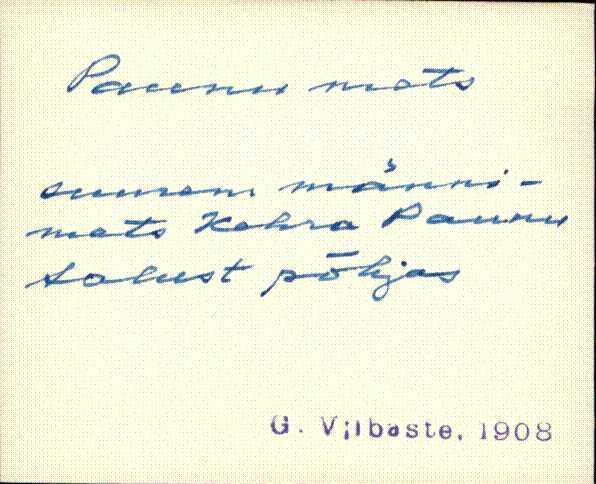 Paunu mets
suurem männi-
mets Kehra Paunu
talust põhjas
G. Vilbaste, 1908